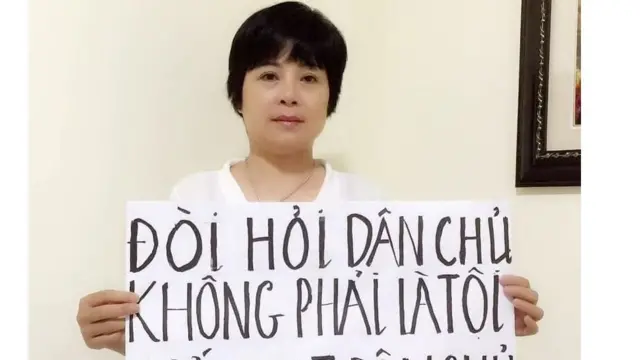 ĐÒI HỎI DÂN CHỦ
KHÔNG PHẢI LÀ TỘI